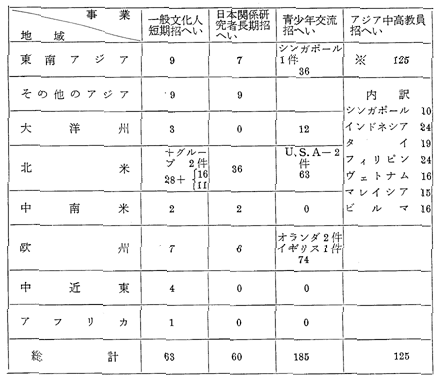 事業
地域
一般文化人短期招へい
日本関係研究者長期招へい
青少年交流招へい
アジア中高教員招へい
東南アジア 9 7 シンガポール1件 36 ※ 125
その他のアジア 9 9
内訳
シンガポール 10
インドネシア 24
タイ 19
フィリピン 24
ヴェトナム 16
マレイシア 15
ビルマ 16
大洋州 3 0 12
北米 +グループ 2件 28+{16 11 36 U.S.A-2件 63
中南米 2 2 0
欧州 7 6 オランダ2件 イギリス1件 74
中近東 4 0 0
アフリカ 1 0 0
総計 63 60 185 125